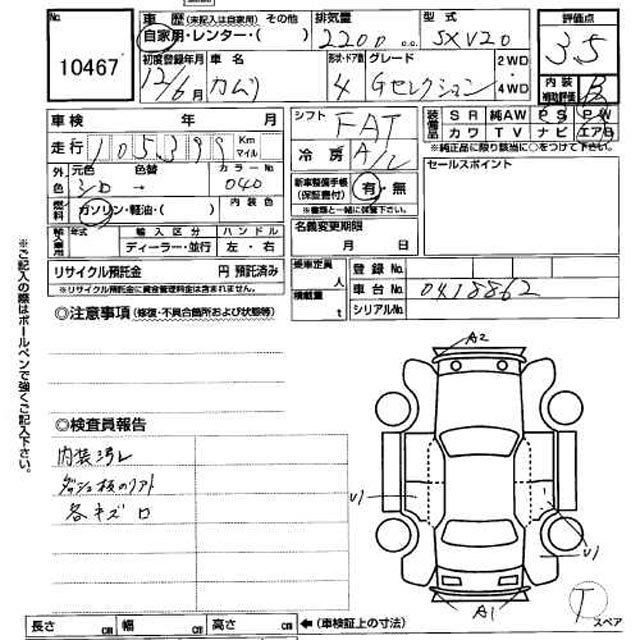 No.
10467
車 歴 (未記入は自家用) その他
自家用・レンター・( )
排気量
2200 c.c.
型式
SXV20
評価点
3.5
初度登録年月
12/6月
車 名
カムリ
形状・ドア数
4
グレード
Gセレクション
2WD
4WD
内 装
補助評価
B
車検 年 月
走行 105,399 Km
マイル
外色
元色
シロ
色替
→
カラーNo.
040
燃料
ガソリン・軽油・( )
内 装 色
輸入車用
年式
輸 入 区 分
ディーラー・並行
ハ ン ド ル
左・右
リサイクル預託金 円 預託済み
※リサイクル預託金に資金管理料金は含まれません。
シフト
FAT
冷 房
A/C
新車整備手帳
(保証書付)
有・無
※書類と一緒に保管下さい。
名義変更期限
月 日
乗車定員
人
積載量
t
装備品
SR 純AW PS PW
カワ TV ナビ エアB
※純正品に限り該当に○をつけて下さい。
セールスポイント
登 録 No.
車 台 No.
0418862
シリアルNo.
◎注意事項 (修復・不具合箇所および状態等)
◎検査員報告
内装汚レ
ダッシュ板のリアト
各キズ ロ
※ご記入の際はボールペンで強くご記入下さい。
A2
U1
U1
A1
T
スペア
長さ cm 幅 cm 高さ cm ←(車検証上の寸法)